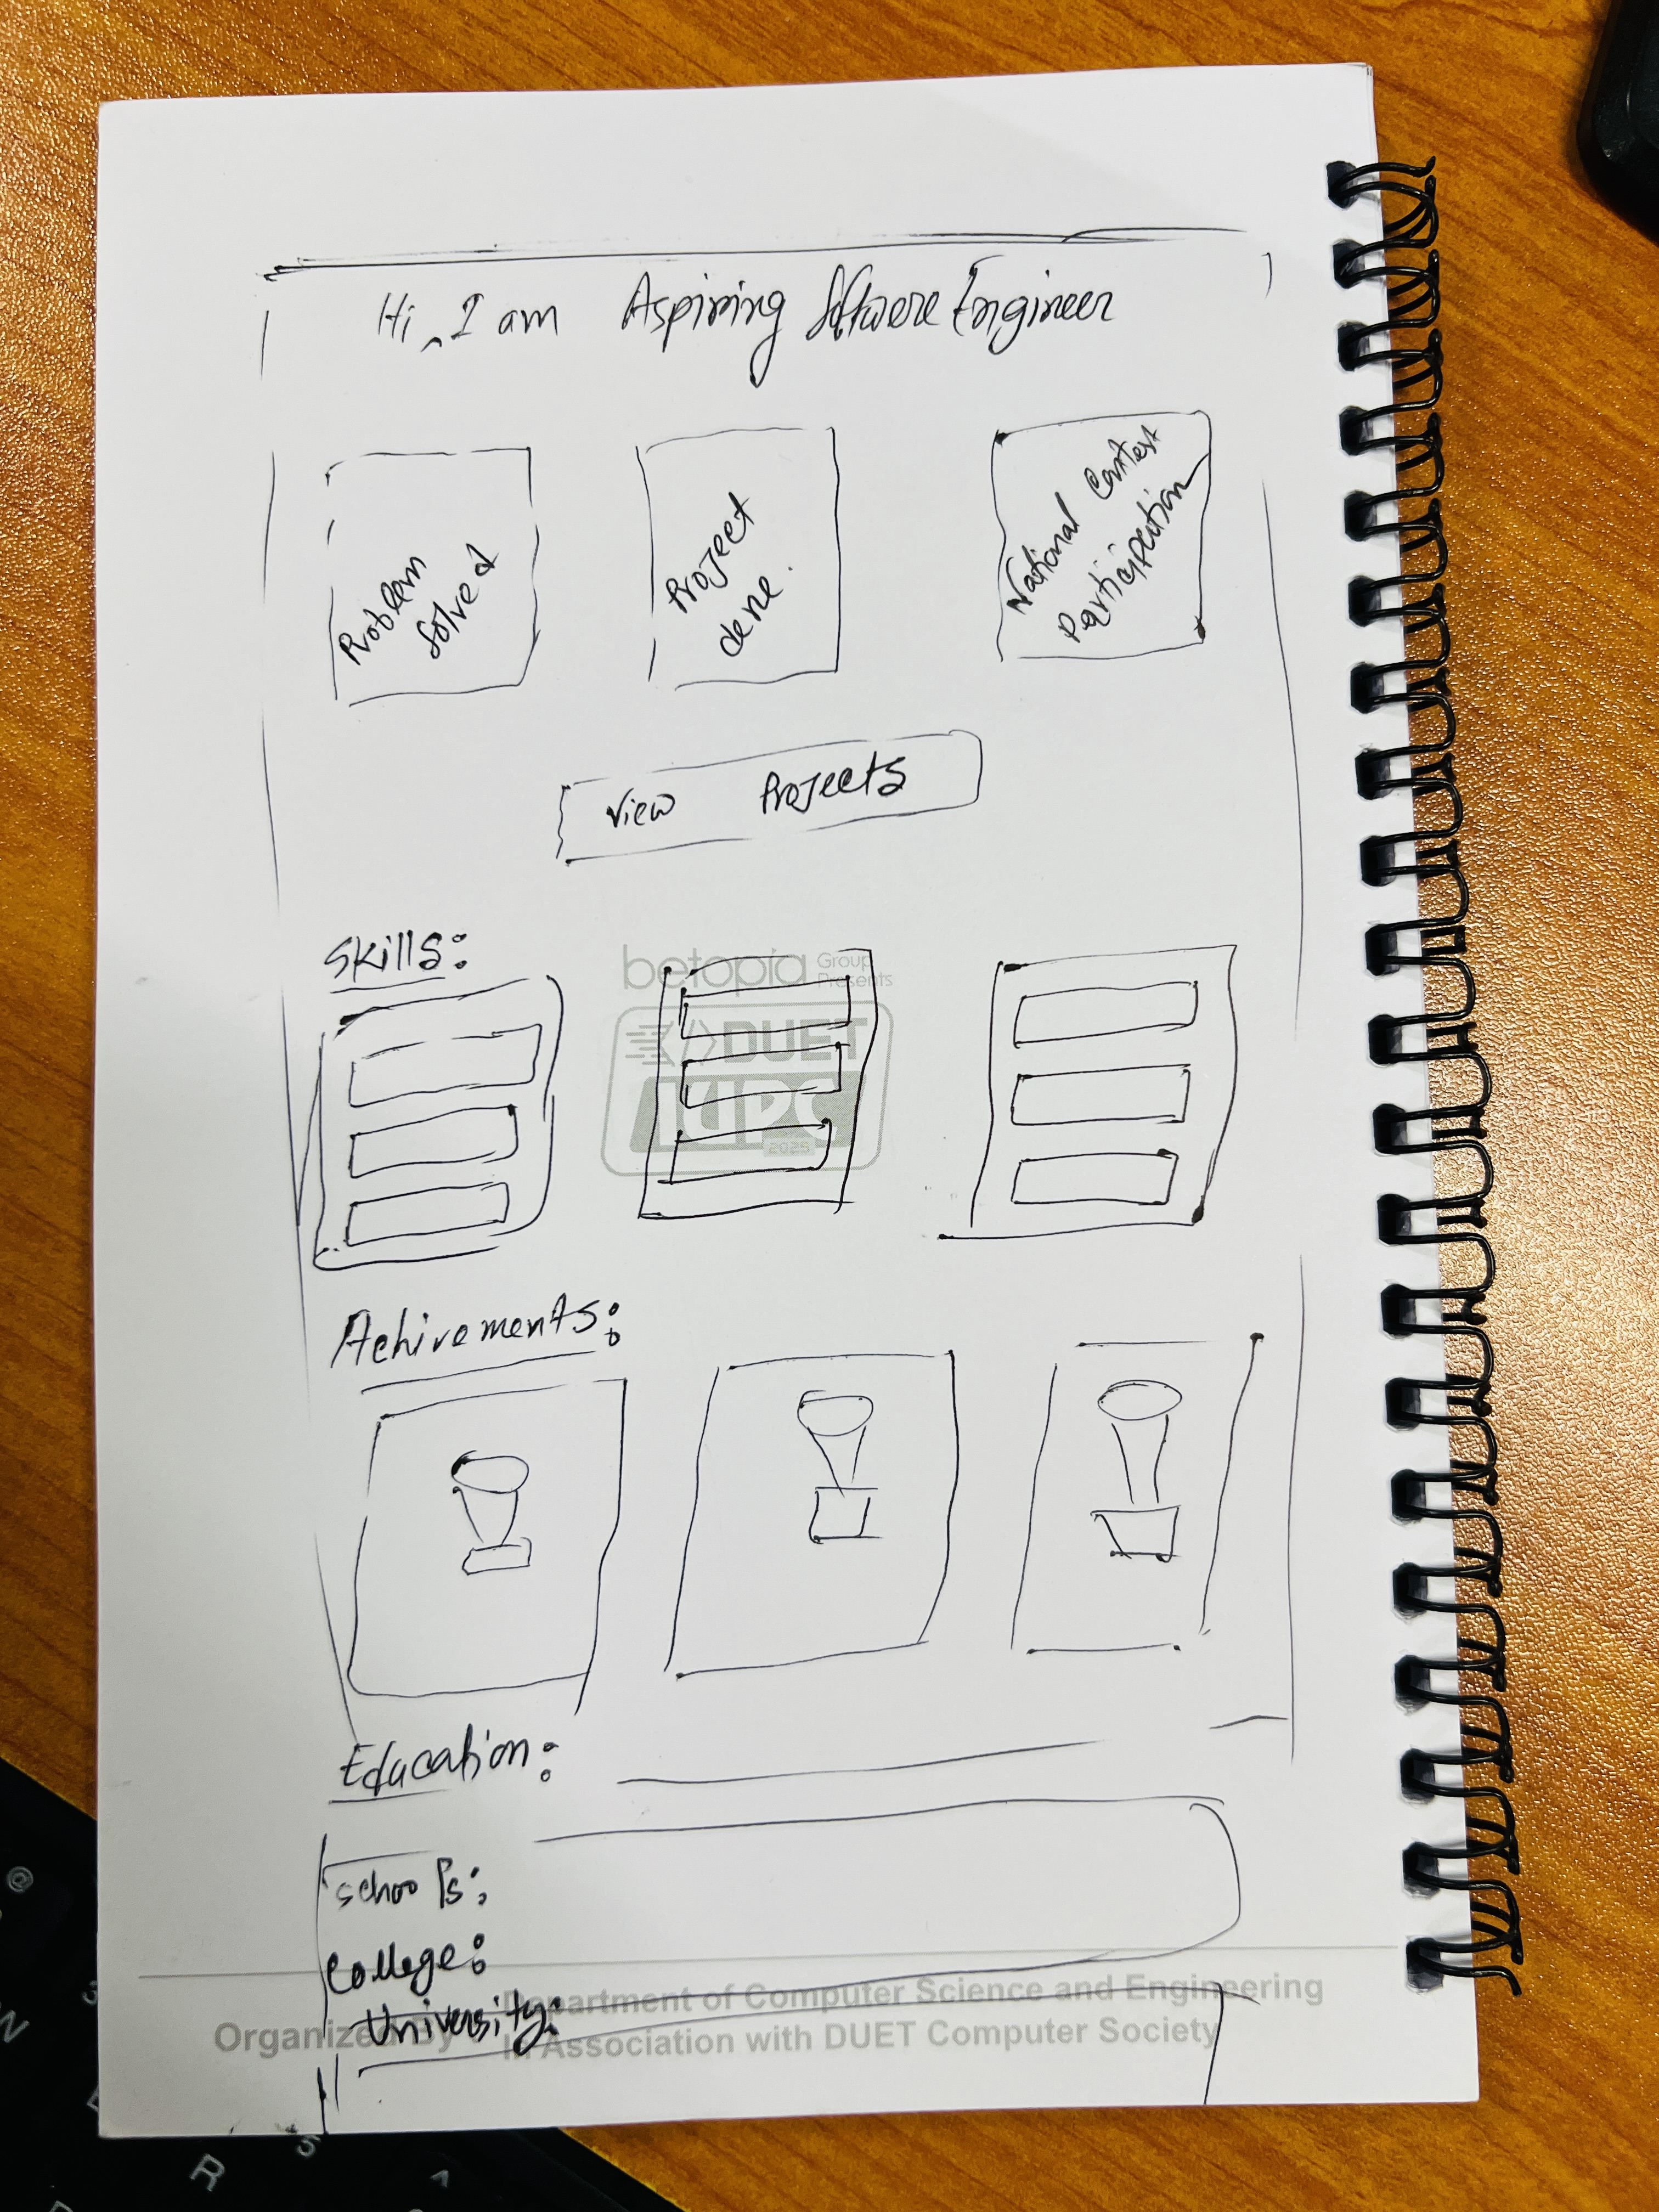 Hi, I am Aspiring Software Engineer
Problem
Solved
Project
done.
National Contest
Participation
View Projects
Skills:
betopia Group
Presents
</>DUET
IUPC
2025
Achivements:
Education:
Schools:
College:
University:
Organized By
Department of Computer Science and Engineering
In Association with DUET Computer Society
@
3
N
R
S